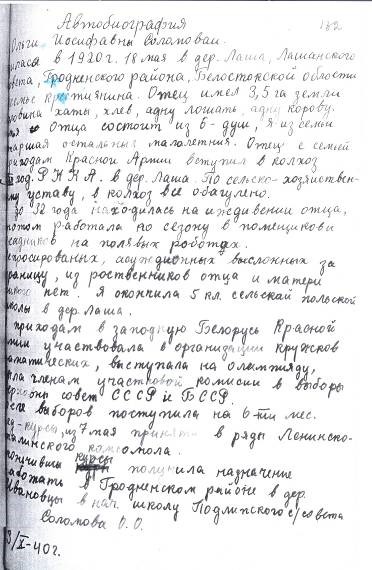 Автобиография
132
Ольги Иосифавны Соломовай.
в 1920г. 18 мая в дер. Лаша, Лашанского
Гродненского района, Белостокской области
крестиянина. Отец имел 3,5 га земли
хаты, хлев, адну лошать, адну корову.
Отца состоит из 6-душ, я из семьи
остальныя малалетния. Отец с семьей
приходам Красной Армии вступил в колхоз
Р.К.К.А. в дер. Лаша. По сельско-хозяиствен-
уставу, в колхоз все обагулено.
До 12 года находилась на иждивении отца,
потом работала по сезону в помещикови
на полявых роботах.
асуждионных высложных за
границу, из роственников отца и матери
нет. Я окончила 5 кл. сельской польской
в дер. Лаша.
приходам в западную Белорусь Красной
участвовала в организации кружков
выступала на олемпияду,
членам участковой комисии в выборы
совет СССР и БССР.
выборов поступила на 6-ти мес.
курсы, из 7 мая принята в ряды Ленинско-
комсомола.
курсы получила назначение
работать в Гродненском районе в дер.
Ивановцы в нач. школу Подлипского с/совета
Соломова О. О.
3/X-40г.